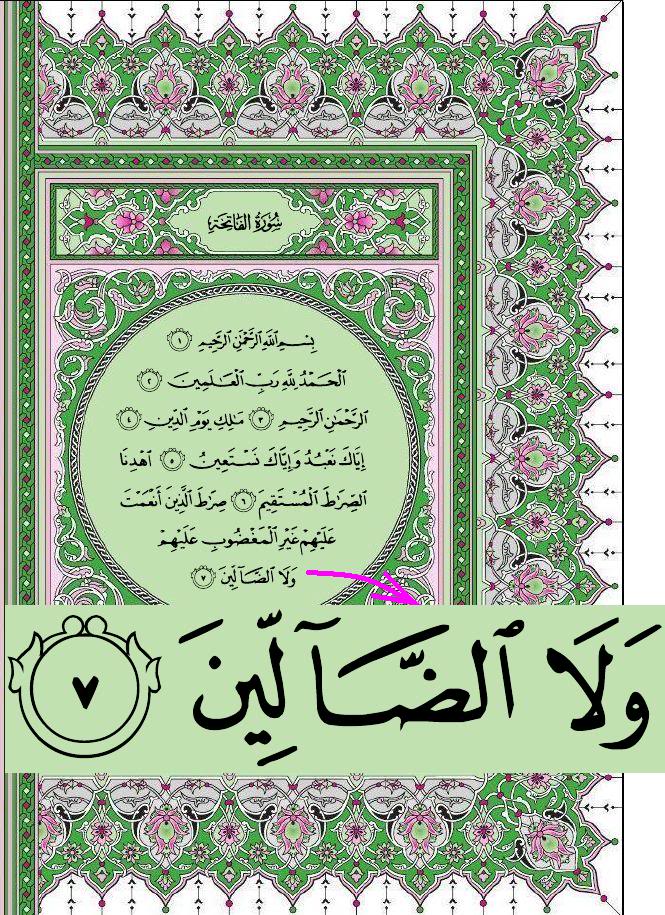 سُورَةُ الفَاتِحَةِ
بِسْمِ ٱللَّهِ ٱلرَّحْمَٰنِ ٱلرَّحِيمِ ١
ٱلْحَمْدُ لِلَّهِ رَبِّ ٱلْعَٰلَمِينَ ٢
ٱلرَّحْمَٰنِ ٱلرَّحِيمِ ٣ مَٰلِكِ يَوْمِ ٱلدِّينِ ٤
إِيَّاكَ نَعْبُدُ وَإِيَّاكَ نَسْتَعِينُ ٥ ٱهْدِنَا
ٱلصِّرَٰطَ ٱلْمُسْتَقِيمَ ٦ صِرَٰطَ ٱلَّذِينَ أَنْعَمْتَ
عَلَيْهِمْ غَيْرِ ٱلْمَغْضُوبِ عَلَيْهِمْ
وَلَا ٱلضَّآلِّينَ ٧
وَلَا ٱلضَّآلِّينَ ٧